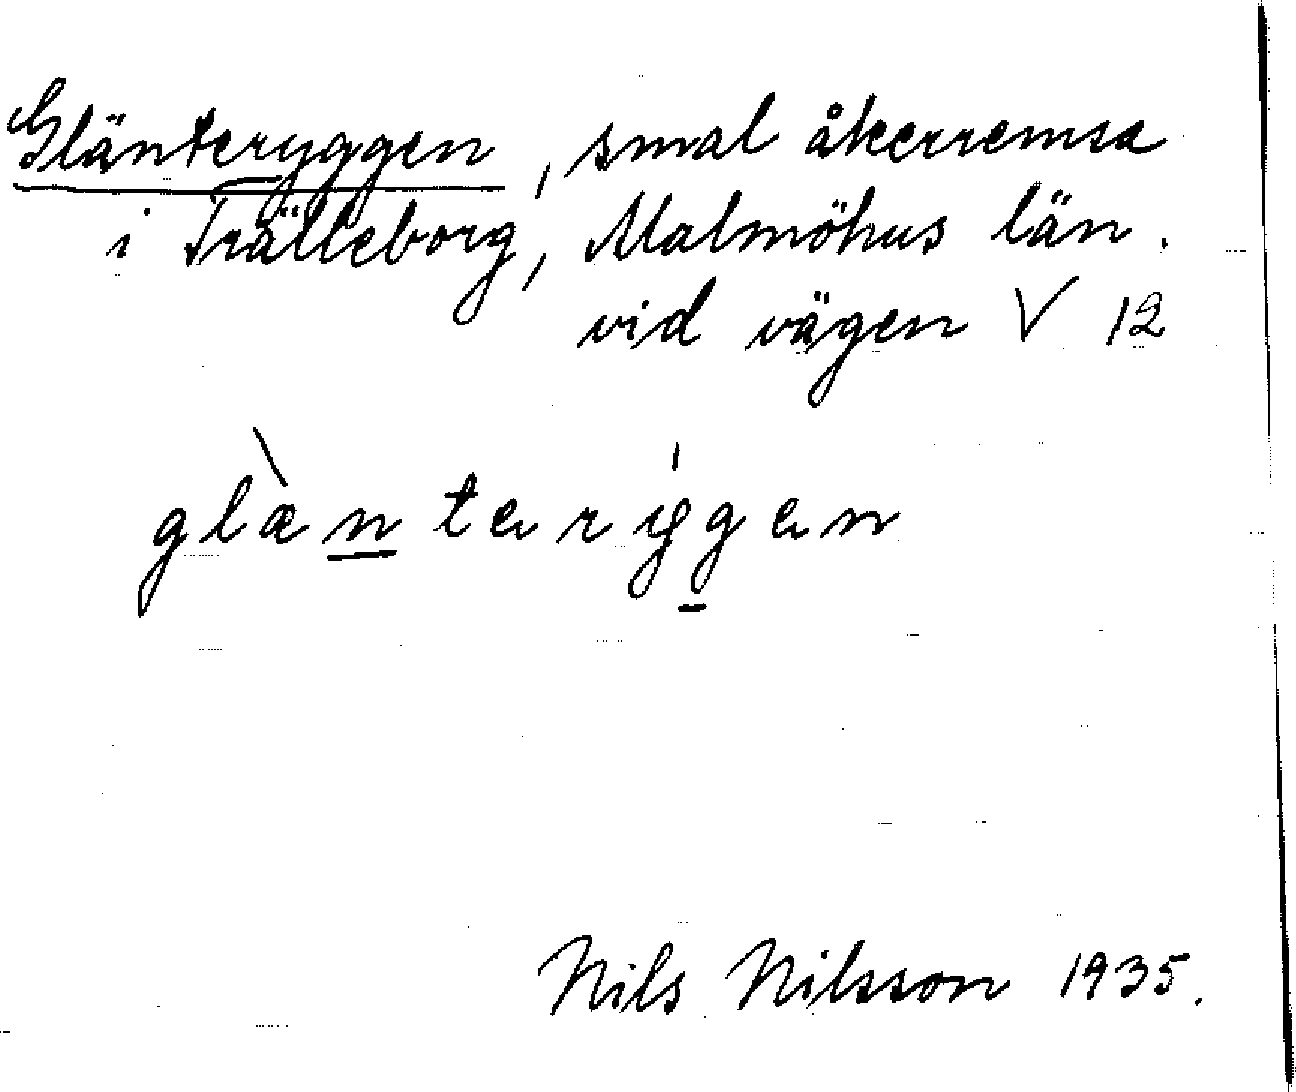 Glänteryggen, smal åkerremsa
i Trälleborg, Malmöhus län.
vid vägen V 12
glæ̀nterýggen
Nils Nilsson 1935.